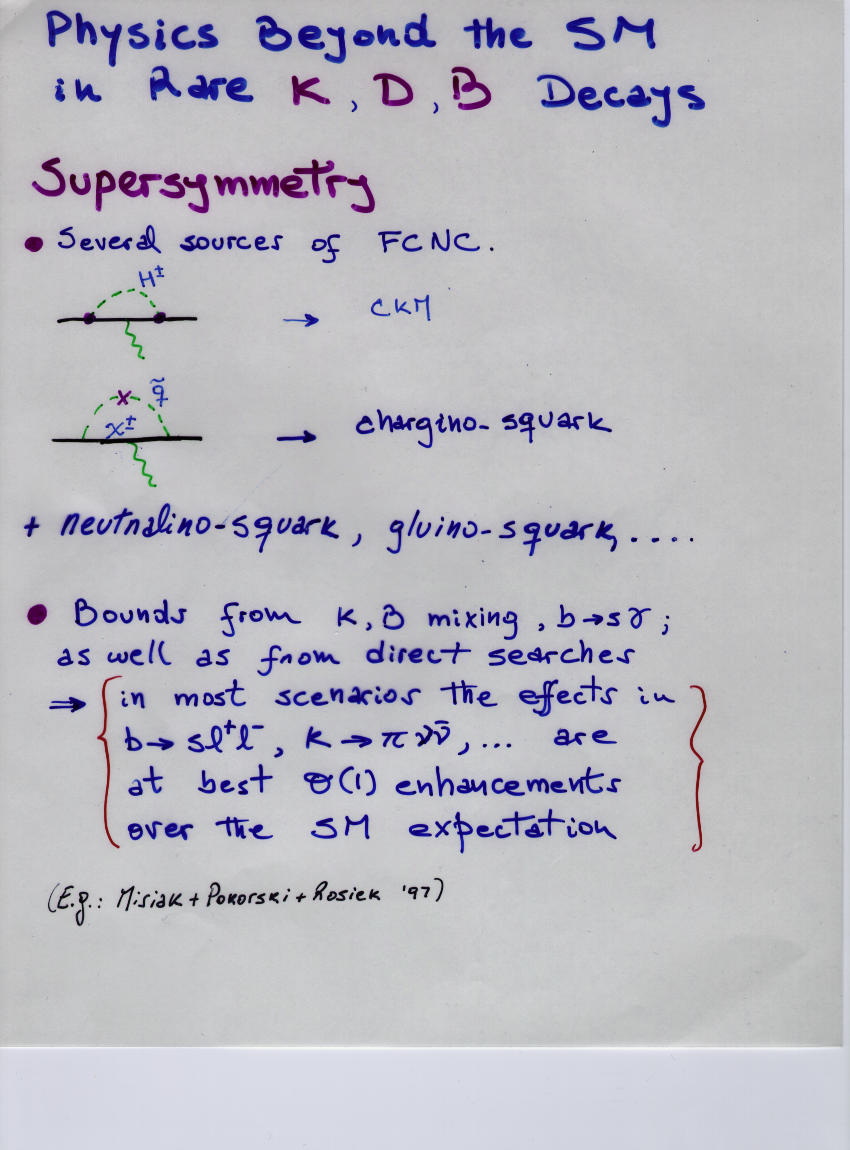 Physics Beyond the SM
in Rare K, D, B Decays
Supersymmetry
• Several sources of FCNC.
H±
→ CKM
x q̃
χ±
→ chargino-squark
+ neutralino-squark, gluino-squark, ....
• Bounds from K, B mixing, b→sγ;
as well as from direct searches
⇒ { in most scenarios the effects in
b→sl⁺l⁻, K→πνν̄, ... are
at best O(1) enhancements
over the SM expectation }
(E.g.: Misiak + Pokorski + Rosiek '97)